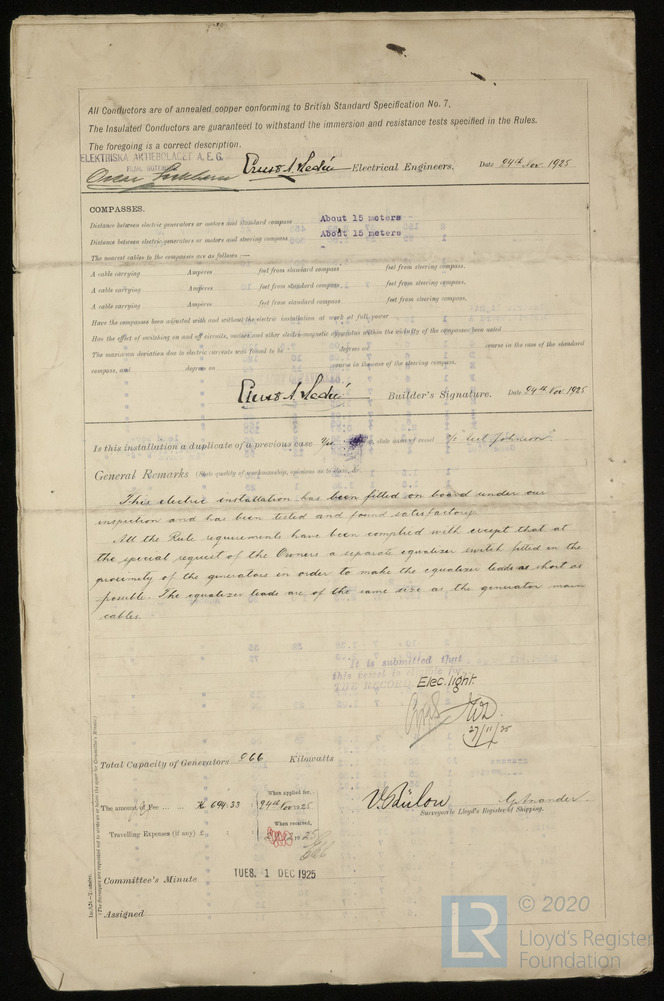 All Conductors are of annealed copper conforming to British Standard Specification No. 7.
The Insulated Conductors are guaranteed to withstand the immersion and resistance tests specified in the Rules.
The foregoing is a correct description.
ELEKTRISKA AKTIEBOLAGET A. E. G.
Electrical Engineers. Date 24th Nov. 1925
COMPASSES.
Distance between electric generators or motors and standard compass About 15 meters
Distance between electric generators or motors and steering compass About 15 meters
The nearest cables to the compasses are as follows:—
A cable carrying Amperes feet from standard compass feet from steering compass.
A cable carrying Amperes feet from standard compass feet from steering compass.
A cable carrying Amperes feet from standard compass feet from steering compass.
Have the compasses been adjusted with and without the electric installation at work at full power
Has the effect of switching on and off circuits, motors and other electro-magnetic apparatus within the vicinity of the compasses been noted
The maximum deviation due to electric currents was found to be degrees on course in the case of the standard
compass, and degrees on course in the case of the steering compass.
Builder's Signature. Date 24th Nov. 1925
Is this installation a duplicate of a previous case Yes state name of vessel
General Remarks (State quality of workmanship, opinions as to class, &c.
This electric installation has been fitted on board under our
inspection and has been tested and found satisfactory.
All the Rule requirements have been complied with except that at
the special request of the Owners a separate equalizer switch fitted in the
proximity of the generators in order to make the equalizer leads as short as
possible. The equalizer leads are of the same size as the generator main
cables.
It is submitted that
this vessel is eligible for
THE RECORD
Elec. light.
27/11/25
Total Capacity of Generators 066 Kilowatts
The amount of Fee ... ... Kr 694.33 When applied for, 24th Nov 1925
V. Bülow
Surveyor to Lloyd's Register of Shipping.
Travelling Expenses (if any) £ : : When received,
Committee's Minute TUES. 1 DEC 1925
Assigned
© 2020
LR
Lloyd's Register
Foundation